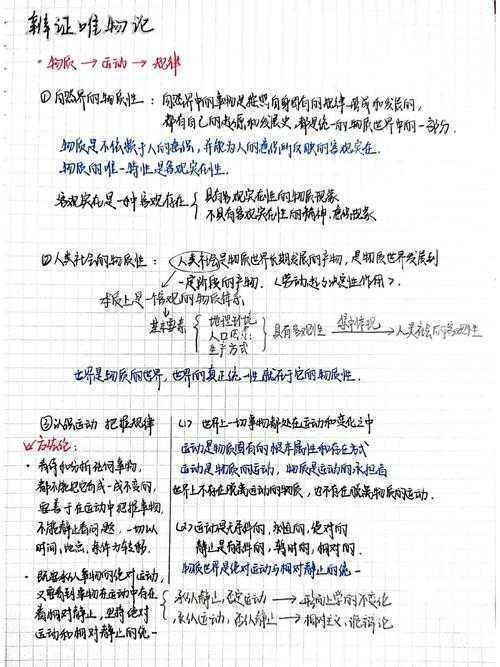 辩证唯物论
· 物质 → 运动 → 规律
① 自然界的物质性：自然界中的事物是按照自身固有的规律形成和发展的，
都有自己的起源和发展史，都是统一的物质世界中的一部分．
物质是不依赖于人的意识，并能为人的意识所反映的客观实在．
物质的唯一特性是客观实在性．
客观实在是一种客观存在
具有客观实在性的物质现象
不具有客观实在性的精神，意识现象
② 人类社会的物质性：人类社会是物质世界长期发展的产物，是物质世界发展到
一定阶段的产物．（劳动起了决定性作用）．
本质上是一个客观的物质体系
基本要素
地理环境
人口因素
生产方式
具有客观性
→人类社会的客观性
世界是物质的世界，世界的真正统一性就在于它的物质性．
③ 认识运动 把握规律
方法论：
· 看待和分析任何事物，
都不能把它看成一成不变的，
应善于在运动中把握事物，
不能静止看问题，一切以
时间，地点，条件为转移．
· 既要承认事物的绝对运动，
又要看到事物在运动中存在
着相对静止，坚持绝对
运动和相对静止的统一
(1) 世界上一切事物都处在运动和变化之中
运动是物质固有的根本属性和存在方式
运动是物质的运动，物质是运动的承担者
世界上不存在脱离运动的物质，也不存在脱离物质的运动．
(2) 运动是无条件的，永恒的，绝对的
静止是有条件的，暂时的，相对的．
物质世界是绝对运动与相对静止的统一
承认静止，否定运动 → 形而上学的不变论
承认运动，否认静止 → 相对主义，诡辩论